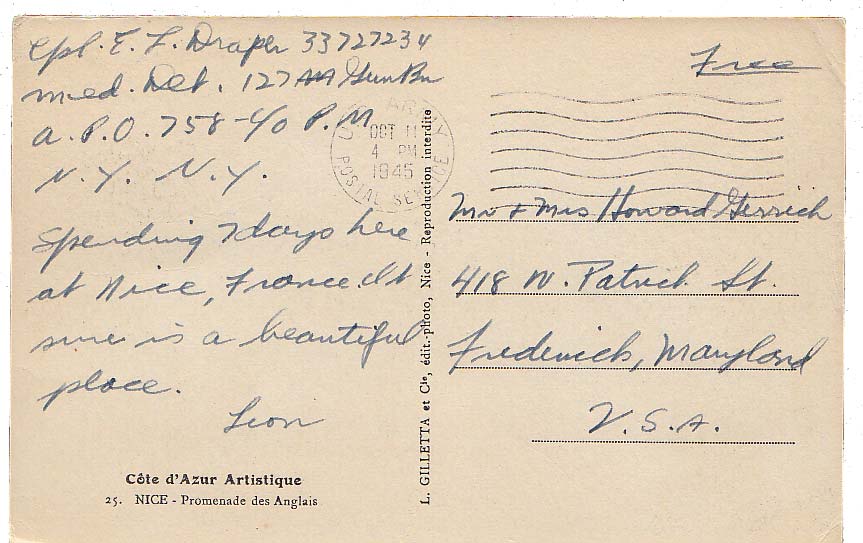 Cpl. E. L. Draper 33727234
Med. Det. 127 AA Gun Bn
A.P.O. 758 - c/o P.M
N.Y. N.Y.
Spending 7 days here
at Nice, France. It
sure is a beautiful
place.
Leon
Côte d'Azur Artistique
25. NICE - Promenade des Anglais
L. GILLETTA et Cie, édit.-photo, Nice - Reproduction interdite
U.S. ARMY
OCT 11
4 PM
1945
POSTAL SERVICE
Free
Mr + Mrs Howard
418 N. Patrick St.
Frederick, Maryland
U.S.A.